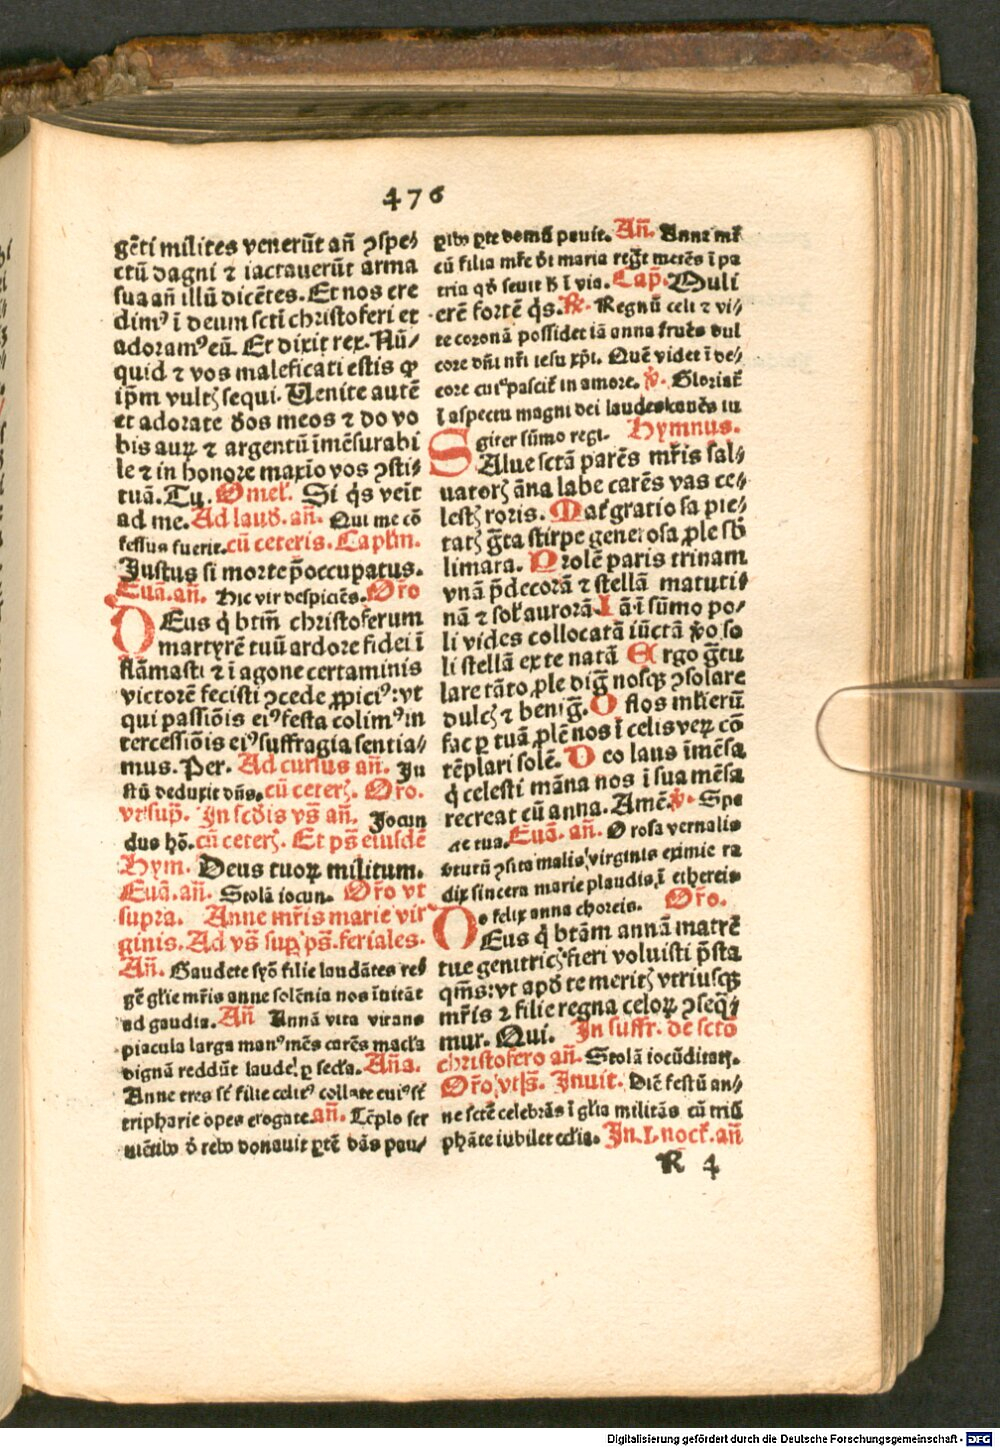 476
gēti milites venerūt añ ↄspe⸗
ctū dagni ⁊ iactauerūt arma
sua añ illū dicētes. Et nos cre
dimꝰ ī deum scti christoferi et
adoramꝰ eū. Et dixit rex. Nū⸗
quid ⁊ vos maleficati estis ꝙ
ip̄m vultꝭ sequi. Uenite autē
et adorate deos meos ⁊ do vo
bis auꝝ ⁊ argentū īmēsurabi
le ⁊ in honore maxīo vos ↄsti⸗
tuā. Tu. Omel. Si q̇s veīt
ad me. Ad laud. añ. Qui me cō
fessus fuerit. cū ceteris. Caplm.
Justus si morte p̄occupatus.
Euā. añ. Hic vir despiciēs. Oro
DEus q̇ btm̄ christoferum
martyrē tuū ardore fidei ī
flāmasti ⁊ ī agone certaminis
victorē fecisti ↄcede ꝓpiciꝰ: vt
qui passiōis eiꝰ festa colimꝰ in
tercessiōis eiꝰ suffragia sentia⸗
mus. Per. Ad cursus añ. Ju
stū deduxit dñs. cū ceterꝭ. Oro.
vt sup̄. In scdis vs̄ añ. Jocun
dus hō. cū ceterꝭ. Et ps̄ eiusdē
Hym. Deus tuoꝝ militum.
Euā. añ. Stolā iocun. Oro vt
supra. Anne mr̄is marie vir
ginis. Ad vs̄ suꝑ ps̄. feriales.
Añ. Gaudete syō filie laudātes re
gē glie mr̄is anne solēnia nos īuitāt
ad gaudia. Añ Annā vita virans
piacula larga manꝰ mēs carēs macla
dignā reddūt laude ꝑ secla. Aña.
Anne tres st filie celitꝰ collate cuiꝰ st
tripharie opes erogate. añ. Tēplo ser
uiētib d reb donauit ꝑtē dās pau⸗
ꝑib ꝑte domū pauit. Añ. Anna mr̄
cū filia mr̄e di maria regit metēs ī pa
tria qd seuit ī via. Cap. Muli
erē fortē q̇s. ℟. Regnū celi ⁊ vi⸗
te coronā possidet iā anna fructs dul
core dn̄i nr̄i iesu xp̄i. Quē videt ī de⸗
core cuiꝰ pascit in amore. ℣. Gloriat
ī aspectu magni dei laudes canēs iu
giter sūmo regi. Hymnus.
SAlue sctā parēs mr̄is sal⸗
uatorꝭ āna labe carēs vas ce⸗
lestꝭ roris. Mat gratiosa pie⸗
tatꝭ grata stirpe generosa ꝓle sb
limara. Prolē paris trinam
vnā p̄decorā ⁊ stellā matuti⸗
nā ⁊ sol aurorā Iā ī sūmo po⸗
li vides collocatā iūctā so
li stellā ex te natā Ergo
lare tāto ꝓle nosqꝫ ↄsolare
dulcꝭ ⁊ benig̃. O flos mlierū
fac ꝑ tuā ꝓlē nos ī celis veꝝ cō
tēplari solē. Deo laus īmēsa
q̇ celesti māna nos ī sua mēsa
recreat cū anna. Amē. ℣. Spe
cie tua. Euā. añ. O rosa vernalis
ↄsita malis virginis eximie ra
dix sincera marie plaudis ī ethereis
o felix anna choreis. Oro.
DEus q̇ btām annām matrē
tue genitricꝭ fieri voluisti p̄sta
qm̄s: vt apd te meritꝭ vtriusqꝫ
mr̄is ⁊ filie regna celoꝝ ↄseq̇⸗
mur. Qui. In suffr. de scto
christofero añ. Stolā iocūditatꝭ.
Oro, vt s̄. Inuit. Diē festū an⸗
ne sctē celebrās ī glia militās cū triū
phāte iubilet eclia. In .I. noct. añ
R 4
Digitalisierung gefördert durch die Deutsche Forschungsgemeinschaft - DFG